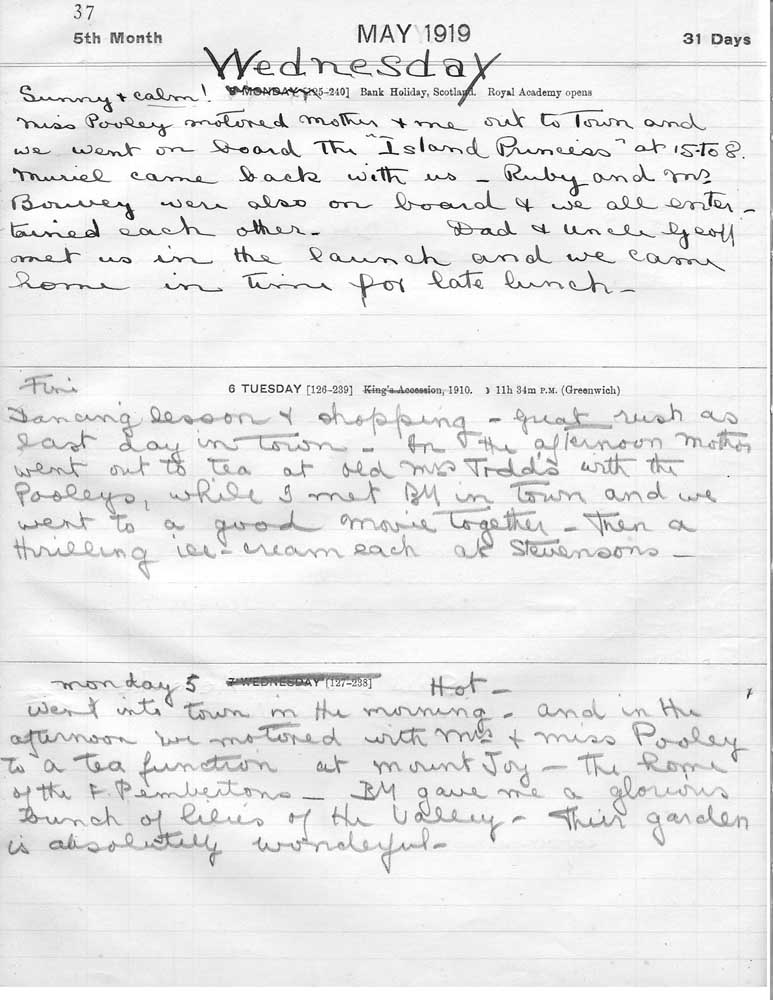 37
5th Month MAY 1919 31 Days
Wednesday
Sunny & calm! 5 MONDAY [125-240] Bank Holiday, Scotland. Royal Academy opens
Miss Pooley motored Mother & me out to Town and
we went on board The "Island Princess" at 15 to 8.
Muriel came back with us - Ruby and Mrs
were also on board & we all enter-
tained each other. Dad & Uncle Geoff
met us in the launch and we came
home in time for late lunch -
Fine 6 TUESDAY [126-239] King's Accession, 1910. ☽ 11h 34m P.M. (Greenwich)
Dancing lesson & shopping - great rush as
last day in town - In the afternoon Mother
went out to tea at old Mrs Todd's with the
Pooleys, while I met BM in Town and we
went to a good movie together - Then a
thrilling ice-cream each at Stevensons -
Monday 5 7 WEDNESDAY [127-238] Hot -
Went into town in the morning - and in the
afternoon we motored with Mrs & Miss Pooley
to a tea function at Mount Joy - the home
of the F Pembertons - BM gave me a glorious
bunch of lilies of the Valley - Their garden
is absolutely wonderful -